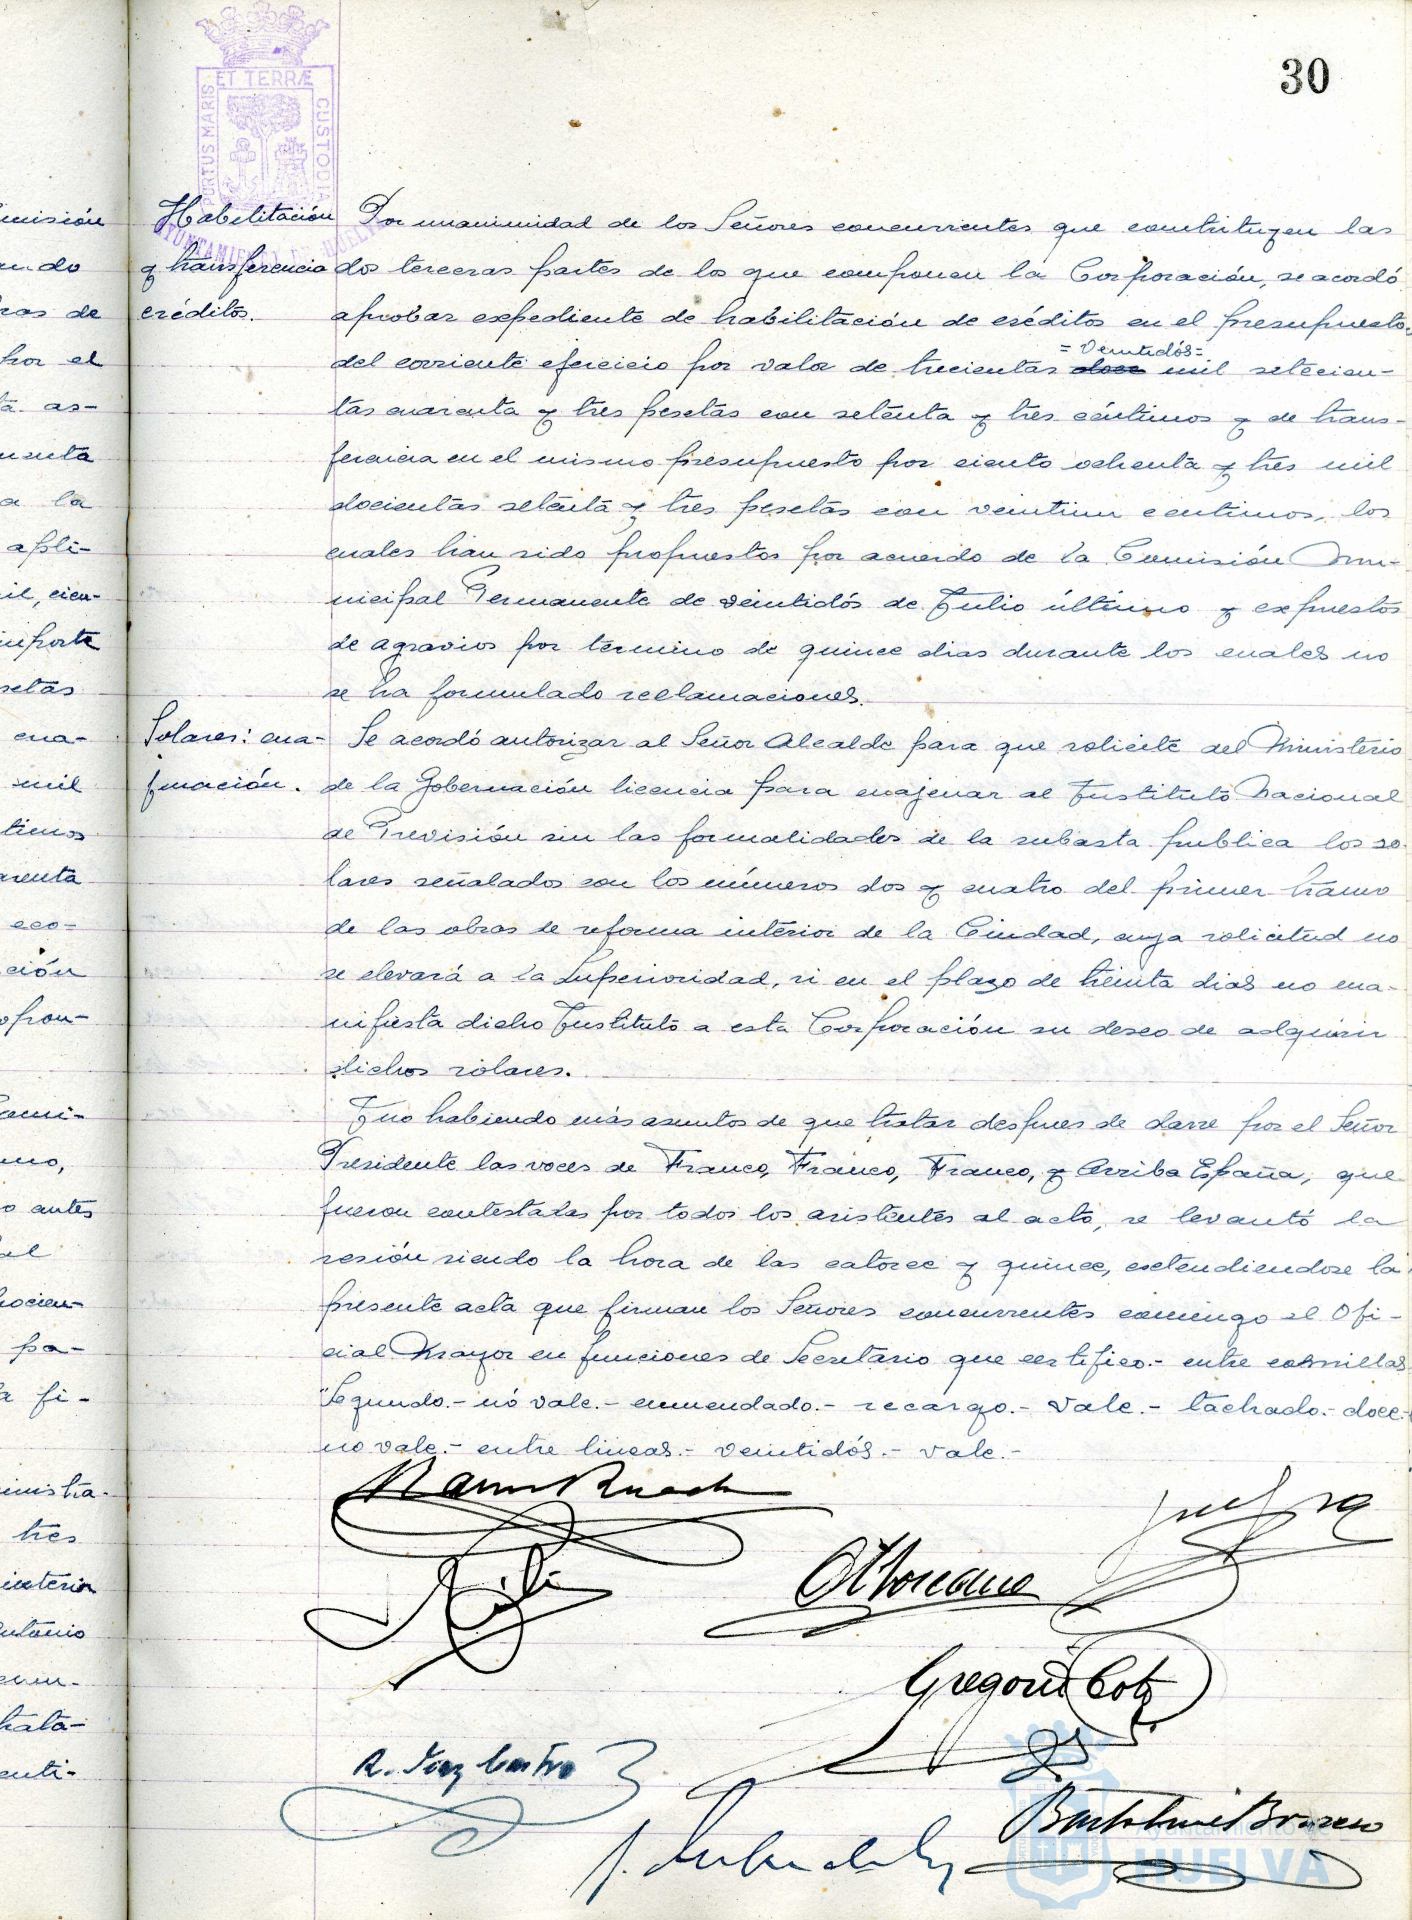 30
PORTUS MARIS ET TERRÆ CUSTODIA
AYUNTAMIENTO DE HUELVA
Habilitación
y transferencia
créditos.
Por unanimidad de los Señores concurrentes que constituyen las
dos terceras partes de los que componen la Corporación, se acordó
aprobar expediente de habilitación de créditos en el presupuesto
= veintidós =
del corriente ejercicio por valor de trecientas doce mil setecien-
tas cuarenta y tres pesetas con setenta y tres céntimos y de trans-
ferencia en el mismo presupuesto por ciento ochenta y tres mil
docientas setenta y tres pesetas con veintiun centimos, los
cuales han sido propuestos por acuerdo de la Comisión Mu-
nicipal Permanente de veintidós de Julio último y expuestos
de agravios por término de quince dias durante los cuales no
se ha formulado reclamaciones.
Solares: ena-
jenación.
Se acordó autorizar al Señor Alcalde para que solicite del Ministerio
de la Gobernación licencia para enajenar al Instituto Nacional
de Previsión sin las formalidades de la subasta publica los so-
lares señalados con los números dos y cuatro del primer tramo
de las obras de reforma interior de la Ciudad, cuya solicitud no
se elevará a la Superioridad, si en el plazo de treinta dias no ma-
nifiesta dicho Instituto a esta Corporación su deseo de adquirir
dichos solares.
Y no habiendo más asuntos de que tratar despues de darse por el Señor
Presidente las voces de Franco, Franco, Franco, y Arriba España, que
fueron contestadas por todos los asistentes al acto, se levantó la
sesión siendo la hora de las catorce y quince, extendiendose la
presente acta que firman los Señores concurrentes conmigo el Ofi-
cial Mayor en funciones de Secretario que certifico.- entre comillas
"Segundo.- nó vale.- enmendado.- recargo.- vale.- tachado.- doce.-
no vale.- entre lineas.- veintidós.- vale.-
Gregorio Coto
R. Diaz Castro
Bartolomé Borrero
Ayuntamiento de
HUELVA
misión
ando
ras de
por el
ta as-
a la
apli-
il, cien-
importe
setas
cua-
mil
timos
arenta
eco-
ción
no,
o antes
al
pa-
a fi-
inistra-
tres
interior
Antonio
trata-